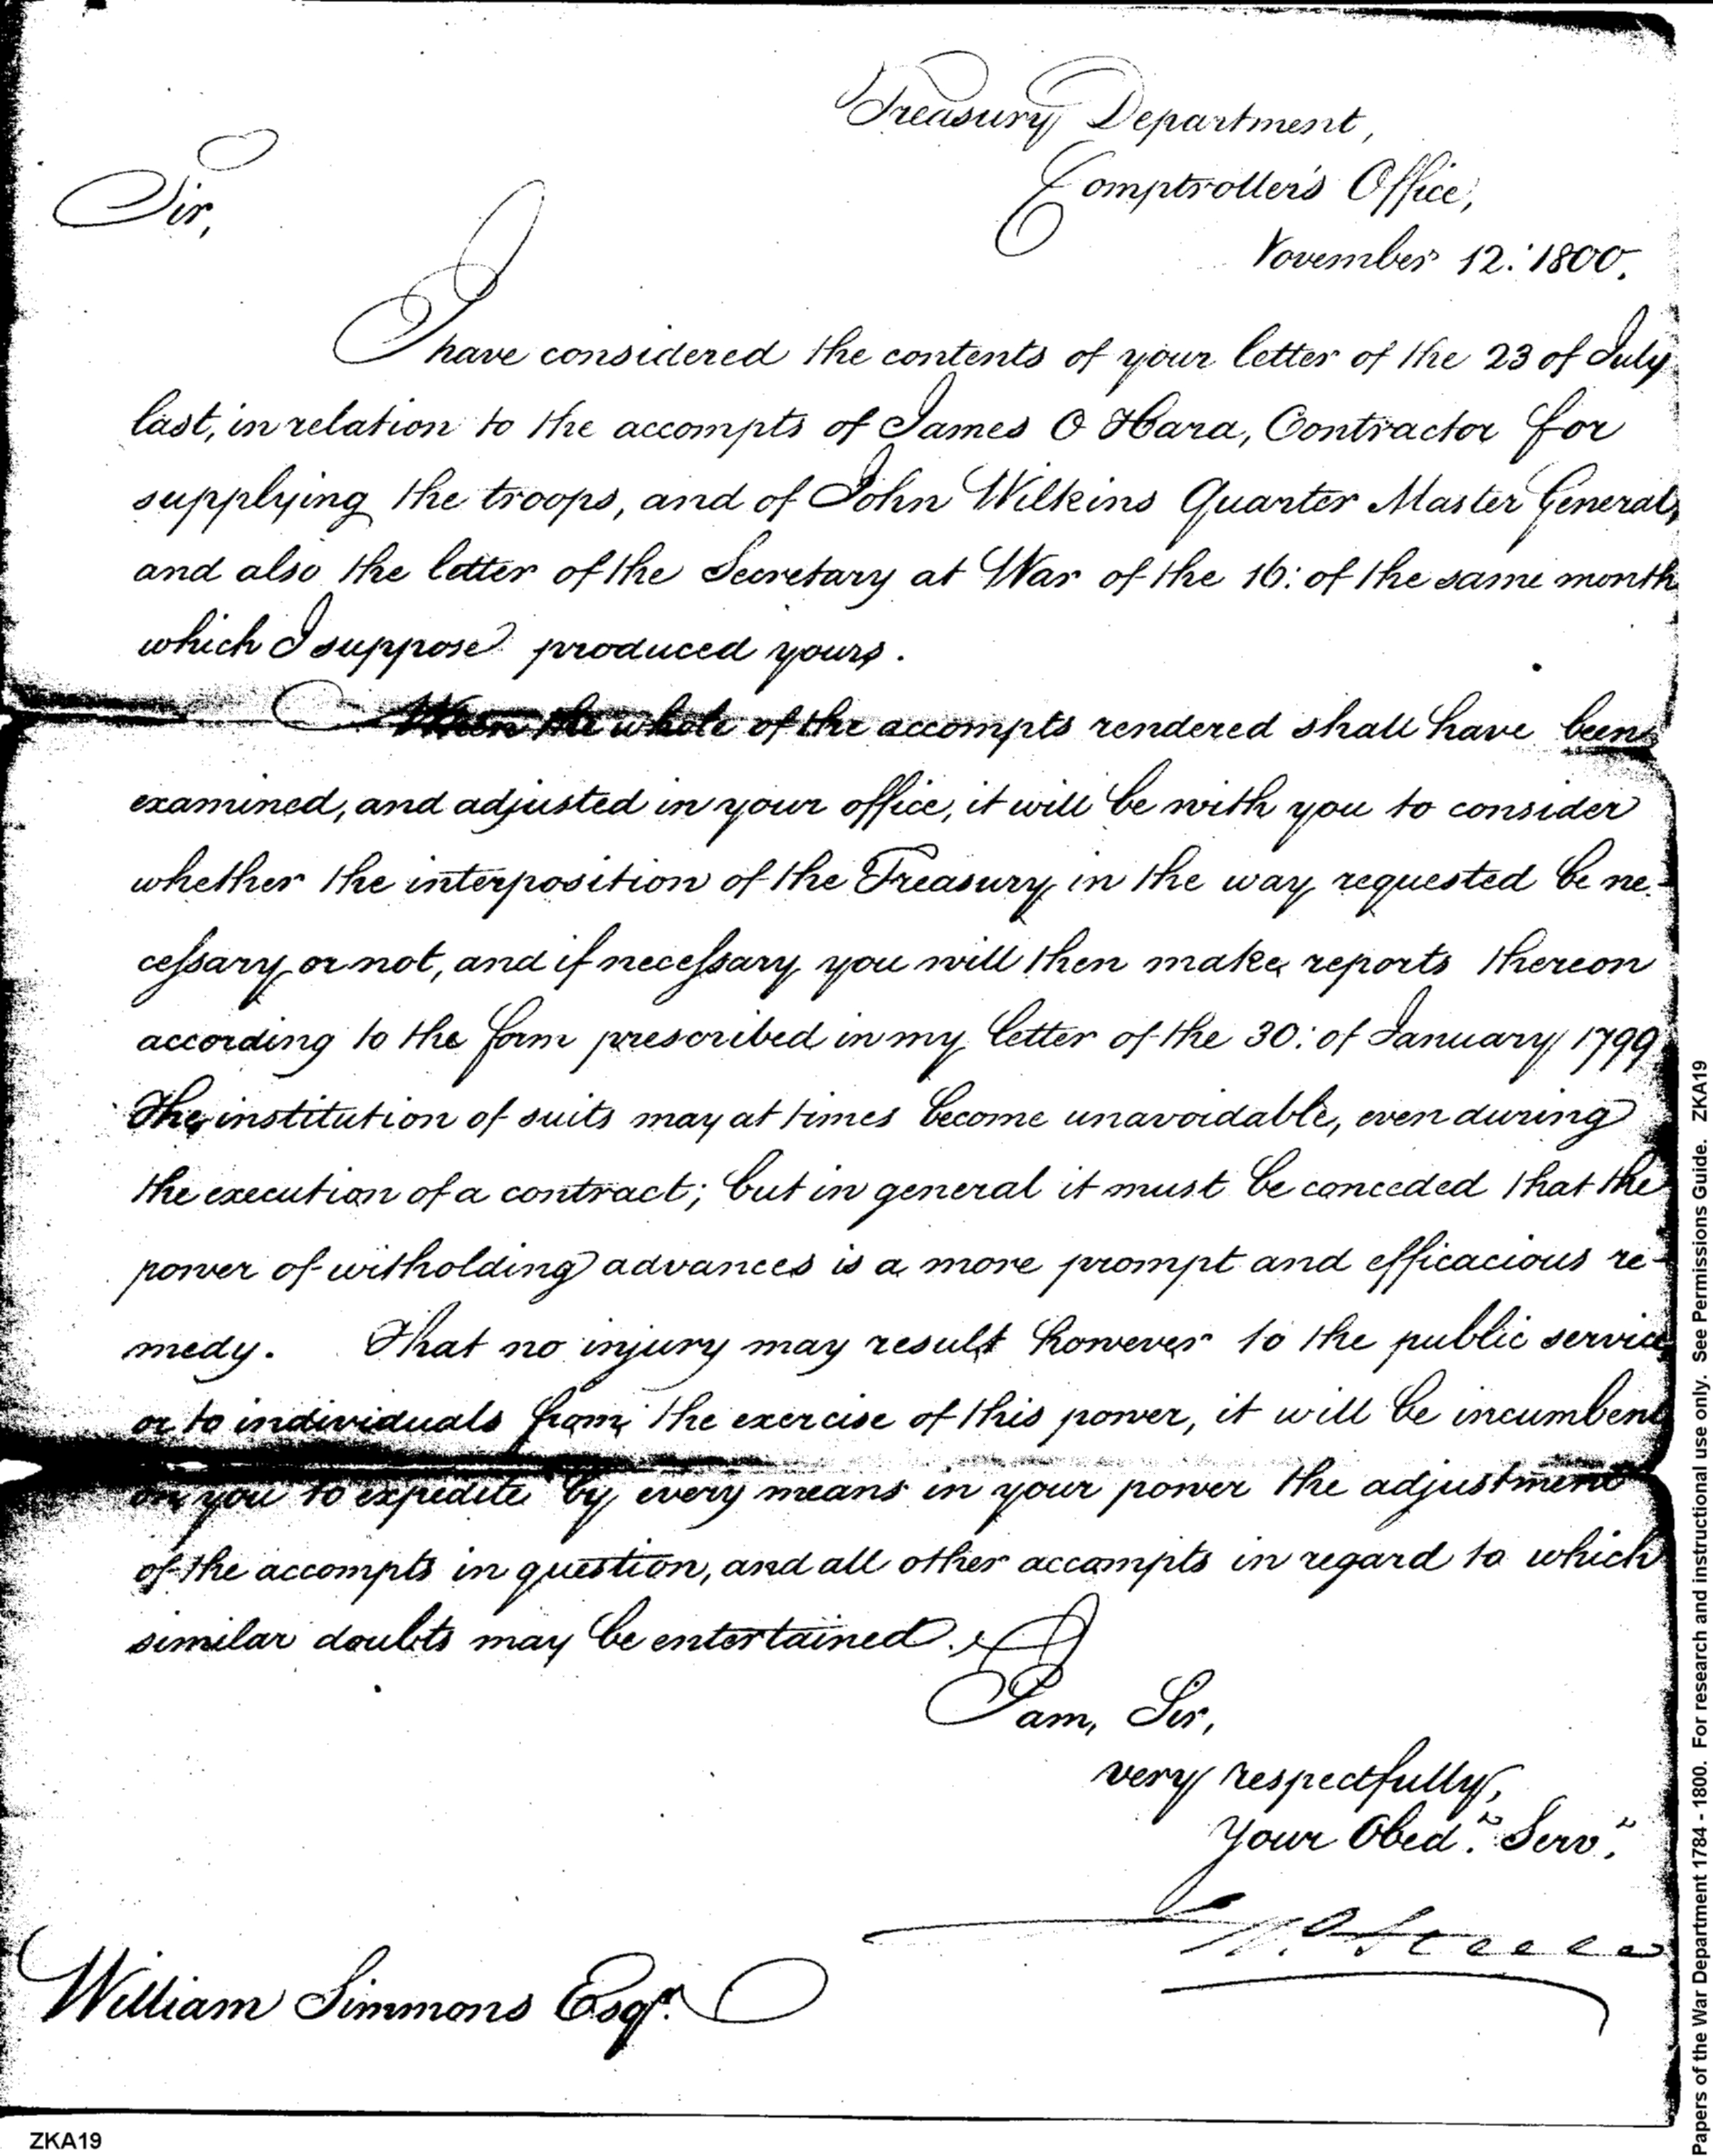 Treasury Department,
Comptroller's Office,
November 12: 1800.
Sir,
I have considered the contents of your letter of the 23 of July
last, in relation to the accompts of James O Hara, Contractor for
supplying the troops, and of John Wilkins Quarter Master General,
and also the letter of the Secretary at War of the 16: of the same month
which I suppose produced yours.
When the whole of the accompts rendered shall have been
examined, and adjusted in your office, it will be with you to consider
whether the interposition of the Treasury in the way requested be ne-
cessary or not, and if necessary you will then make reports thereon
according to the form prescribed in my letter of the 30: of January 1799
The institution of suits may at times become unavoidable, even during
the execution of a contract; but in general it must be conceded that the
power of witholding advances is a more prompt and efficacious re-
medy. That no injury may result however to the public service
or to individuals from the exercise of this power, it will be incumbent
on you to expedite by every means in your power the adjustment
of the accompts in question, and all other accompts in regard to which
similar doubts may be entertained.
I am, Sir,
very respectfully,
Your Obed.t Serv.t
Jno Steele
William Simmons Esqr.
ZKA19
Papers of the War Department 1784 - 1800. For research and instructional use only. See Permissions Guide. ZKA19